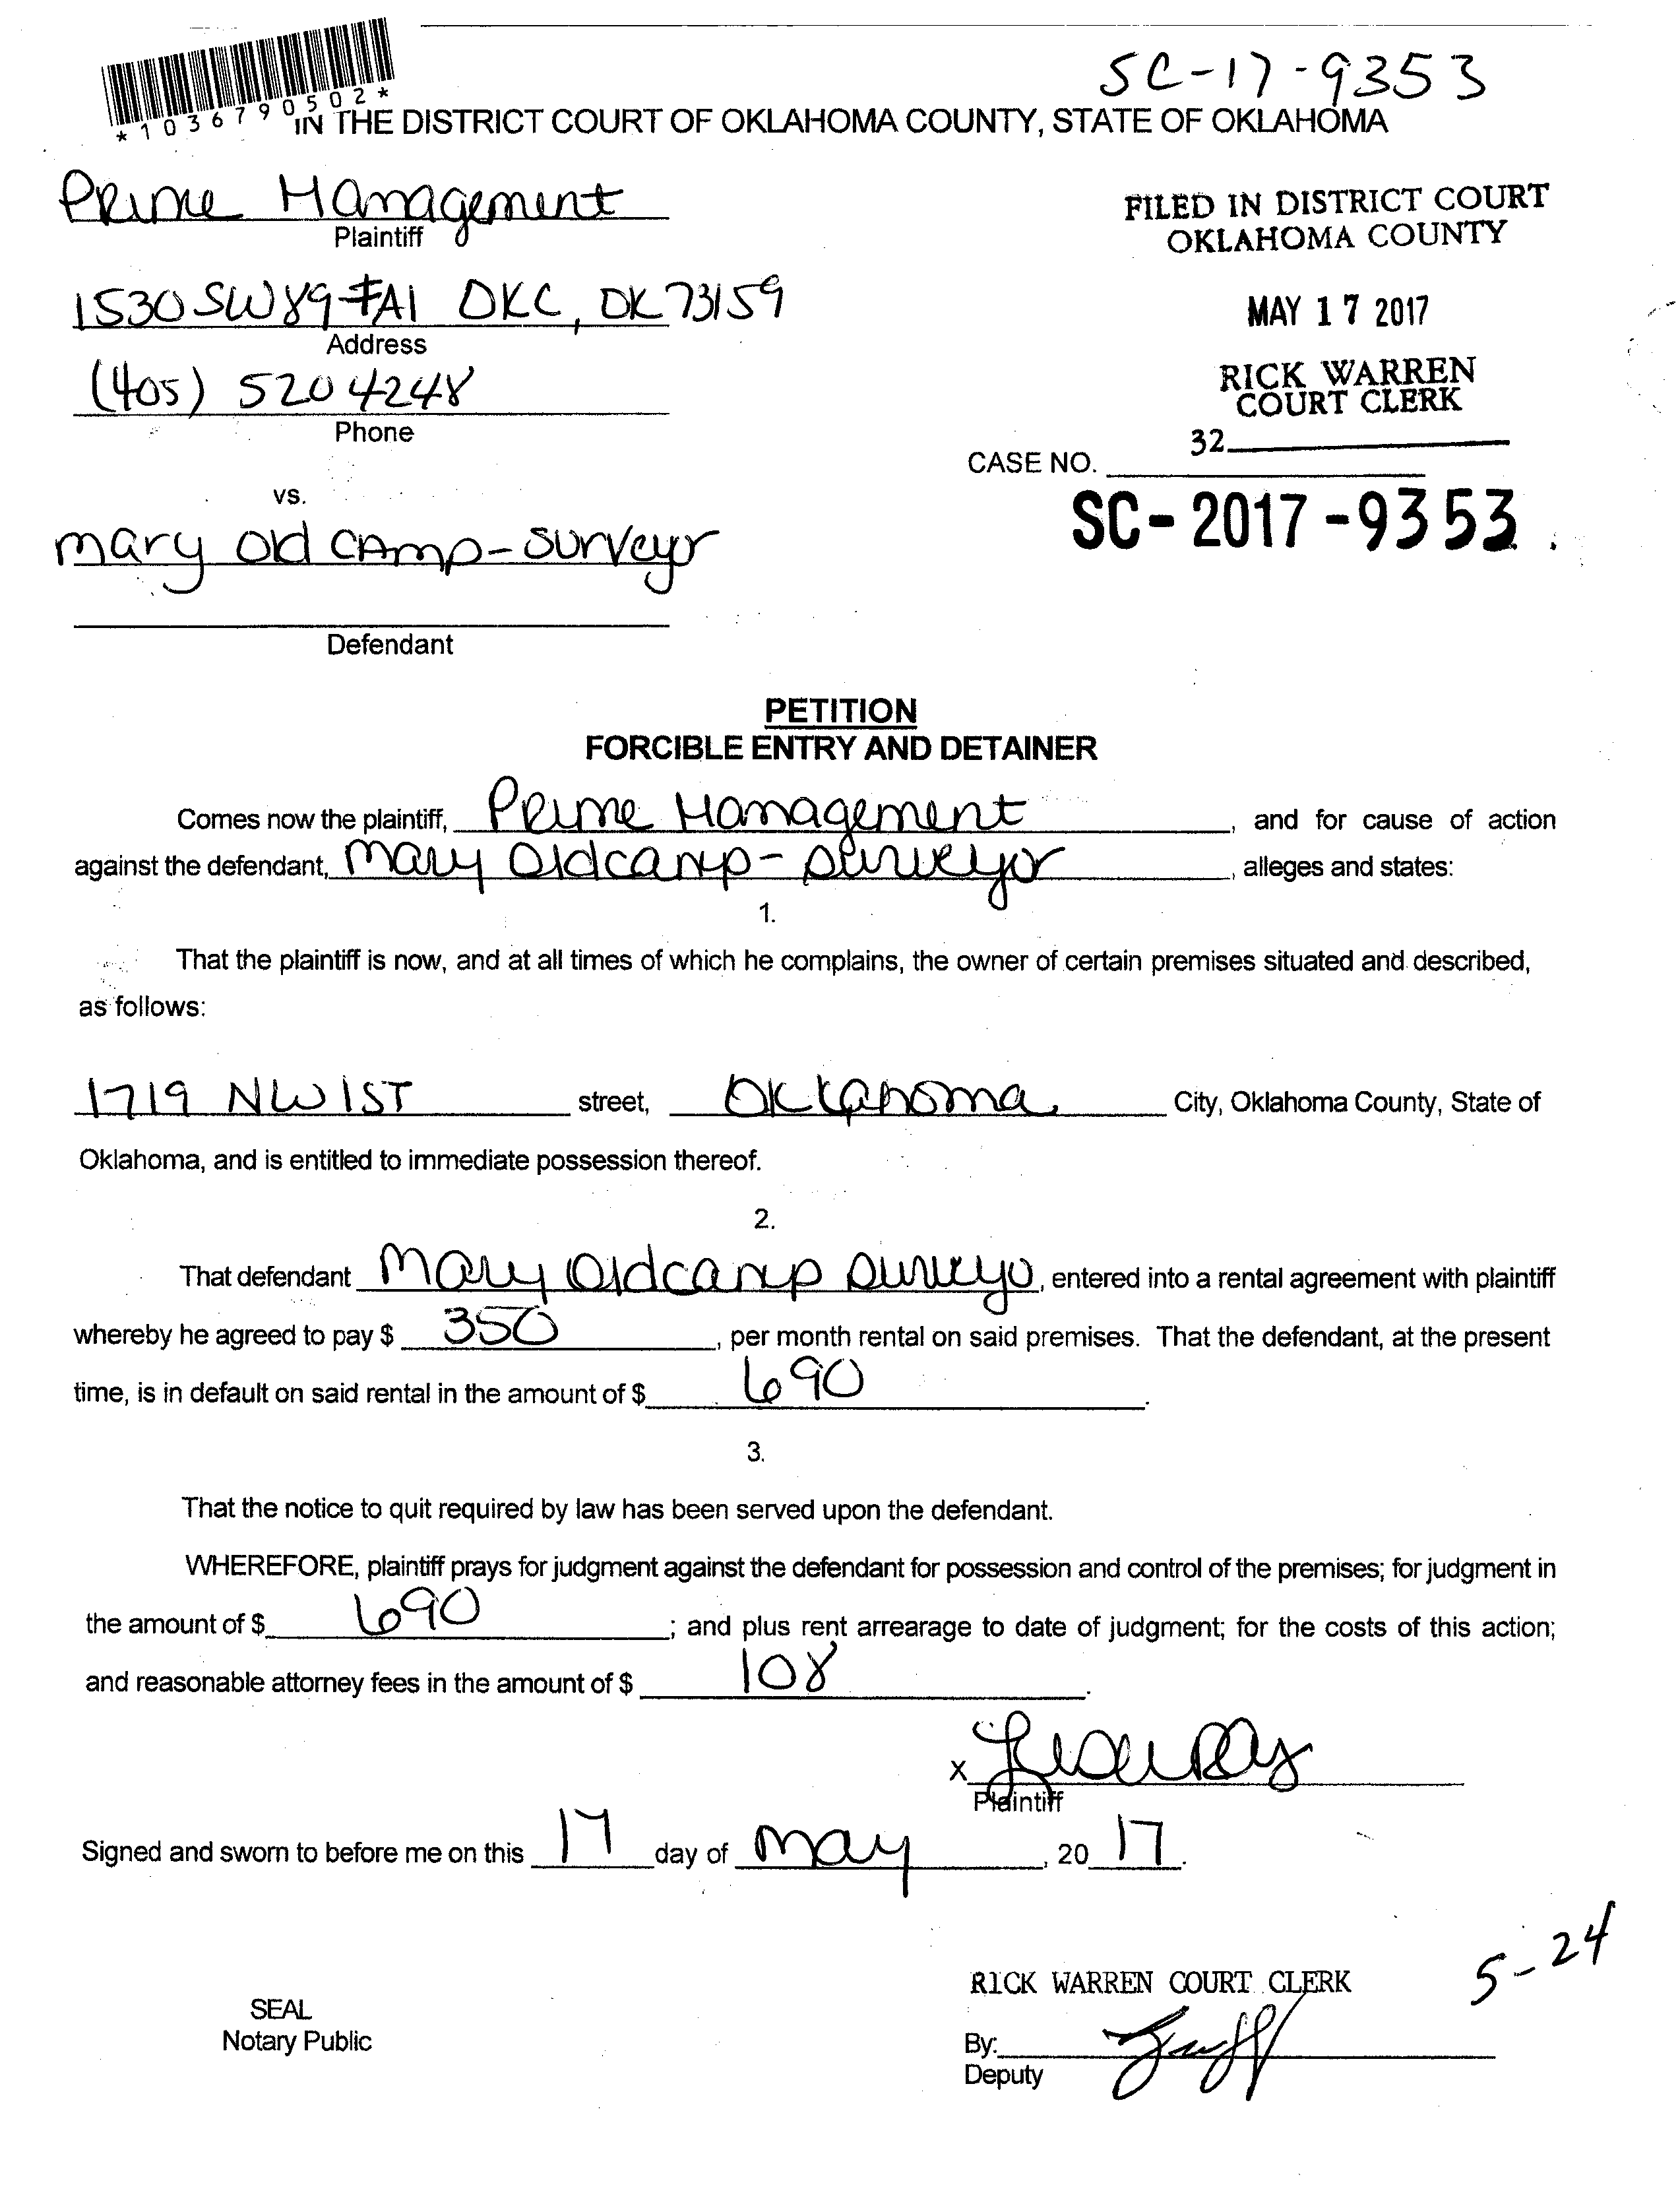 SC-17-9353
*1036790502*
IN THE DISTRICT COURT OF OKLAHOMA COUNTY, STATE OF OKLAHOMA
Prime Management
Plaintiff
FILED IN DISTRICT COURT
OKLAHOMA COUNTY
1530 SW 89 #A1 OKC, OK 73159
Address
MAY 17 2017
(405) 520 4248
Phone
RICK WARREN
COURT CLERK
32
CASE NO.
SC-2017-9353
vs.
mary old camp-surveyor
Defendant
PETITION
FORCIBLE ENTRY AND DETAINER
Comes now the plaintiff, Prime Management, and for cause of action
against the defendant, Mary Oldcamp-surveyor, alleges and states:
1.
That the plaintiff is now, and at all times of which he complains, the owner of certain premises situated and described,
as follows:
1719 NW 1ST street, Oklahoma City, Oklahoma County, State of
Oklahoma, and is entitled to immediate possession thereof.
2.
That defendant Mary Oldcamp Surveyo, entered into a rental agreement with plaintiff
whereby he agreed to pay $ 350, per month rental on said premises. That the defendant, at the present
time, is in default on said rental in the amount of $ 690.
3.
That the notice to quit required by law has been served upon the defendant.
WHEREFORE, plaintiff prays for judgment against the defendant for possession and control of the premises; for judgment in
the amount of $ 690; and plus rent arrearage to date of judgment; for the costs of this action;
and reasonable attorney fees in the amount of $ 108.
X
Plaintiff
Signed and sworn to before me on this 17 day of May, 2017.
5-24
RICK WARREN COURT CLERK
SEAL
Notary Public
By:
Deputy